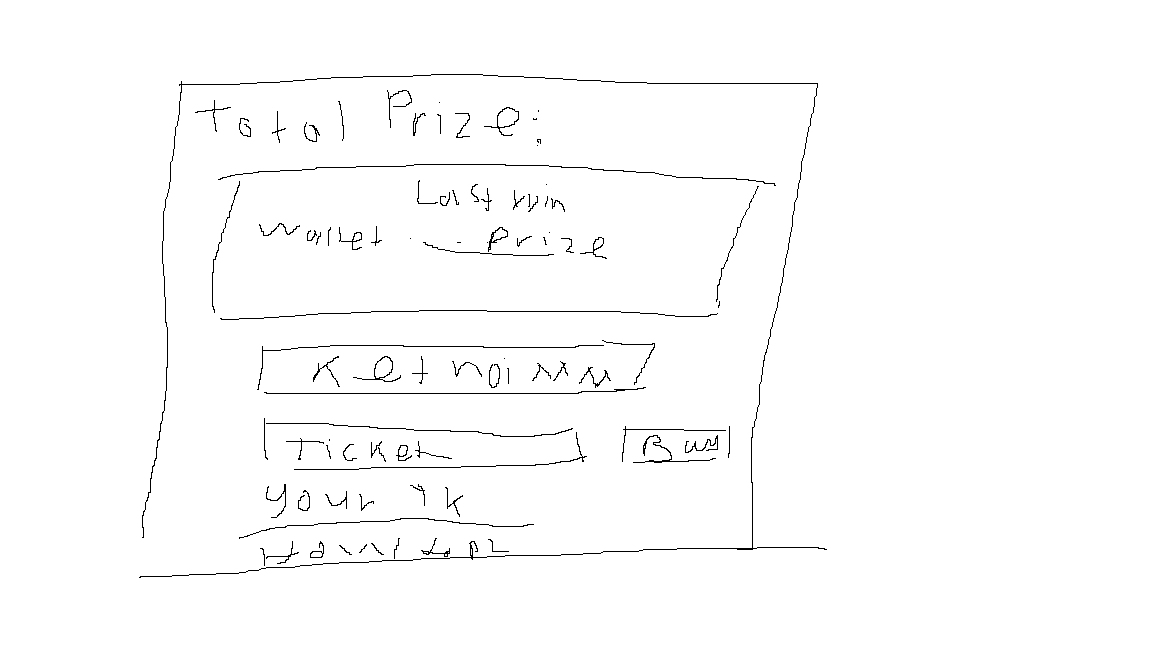 Total Prize:
Last win
Wallet Prize
Ket noi
Ticket Buy
Your TK
How